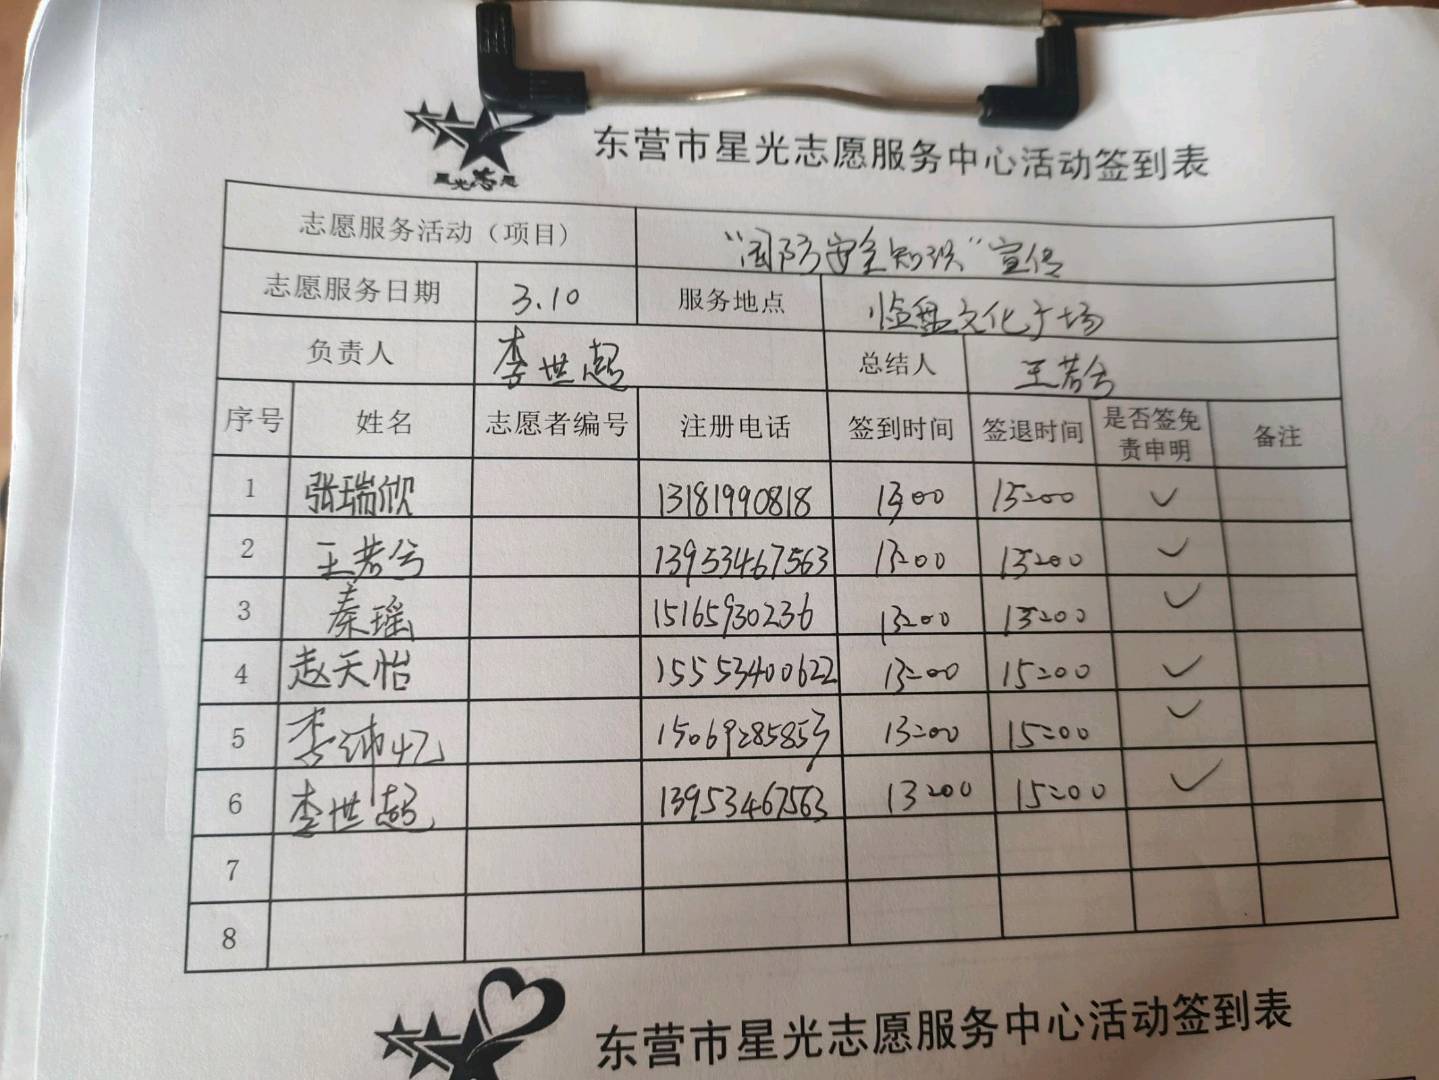 星光志愿
东营市星光志愿服务中心活动签到表
志愿服务活动（项目） “国防安全知识”宣传
志愿服务日期 3.10 服务地点 临盘文化广场
负责人 李世超 总结人 王若兮
序号 姓名 志愿者编号 注册电话 签到时间 签退时间 是否签免责申明 备注
1 张瑞欣 13181990818 13:00 15:00 ✓
2 王若兮 13953467563 13:00 15:00 ✓
3 秦瑶 15165930236 13:00 15:00 ✓
4 赵天怡 15553400622 13:00 15:00 ✓
5 李沛忆 15069285853 13:00 15:00 ✓
6 李世超 13953467563 13:00 15:00 ✓
7
8
东营市星光志愿服务中心活动签到表